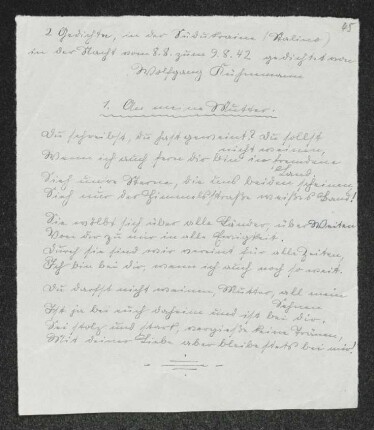 45
2 Gedichte, in der Südukraine (Stalino)
in der Nacht vom 8.8. zum 9.8.42 gedichtet von
Wolfgang
1. An meine Mutter.
Du schreibst, du hast geweint? Du sollst
nicht weinen,
Wenn ich auch fern dir bin in fremdem
Land
Sieh unsre Sterne, die uns beiden scheinen,
Sieh nur der Himmelsstraße weißes Band!
Sie wölbt sich über alle Länder, über Weiten
Von dir zu mir in alle Ewigkeit.
Durch sie sind wir vereint für alle Zeiten,
Ich bin bei dir, wenn ich auch noch so weit.
Du darfst nicht weinen, Mutter, all mein
Sehnen
Ist ja bei euch daheim und ist bei dir.
Sei stolz und stark, vergieße keine Tränen,
Mit deiner Liebe aber bleibe stets bei mir!